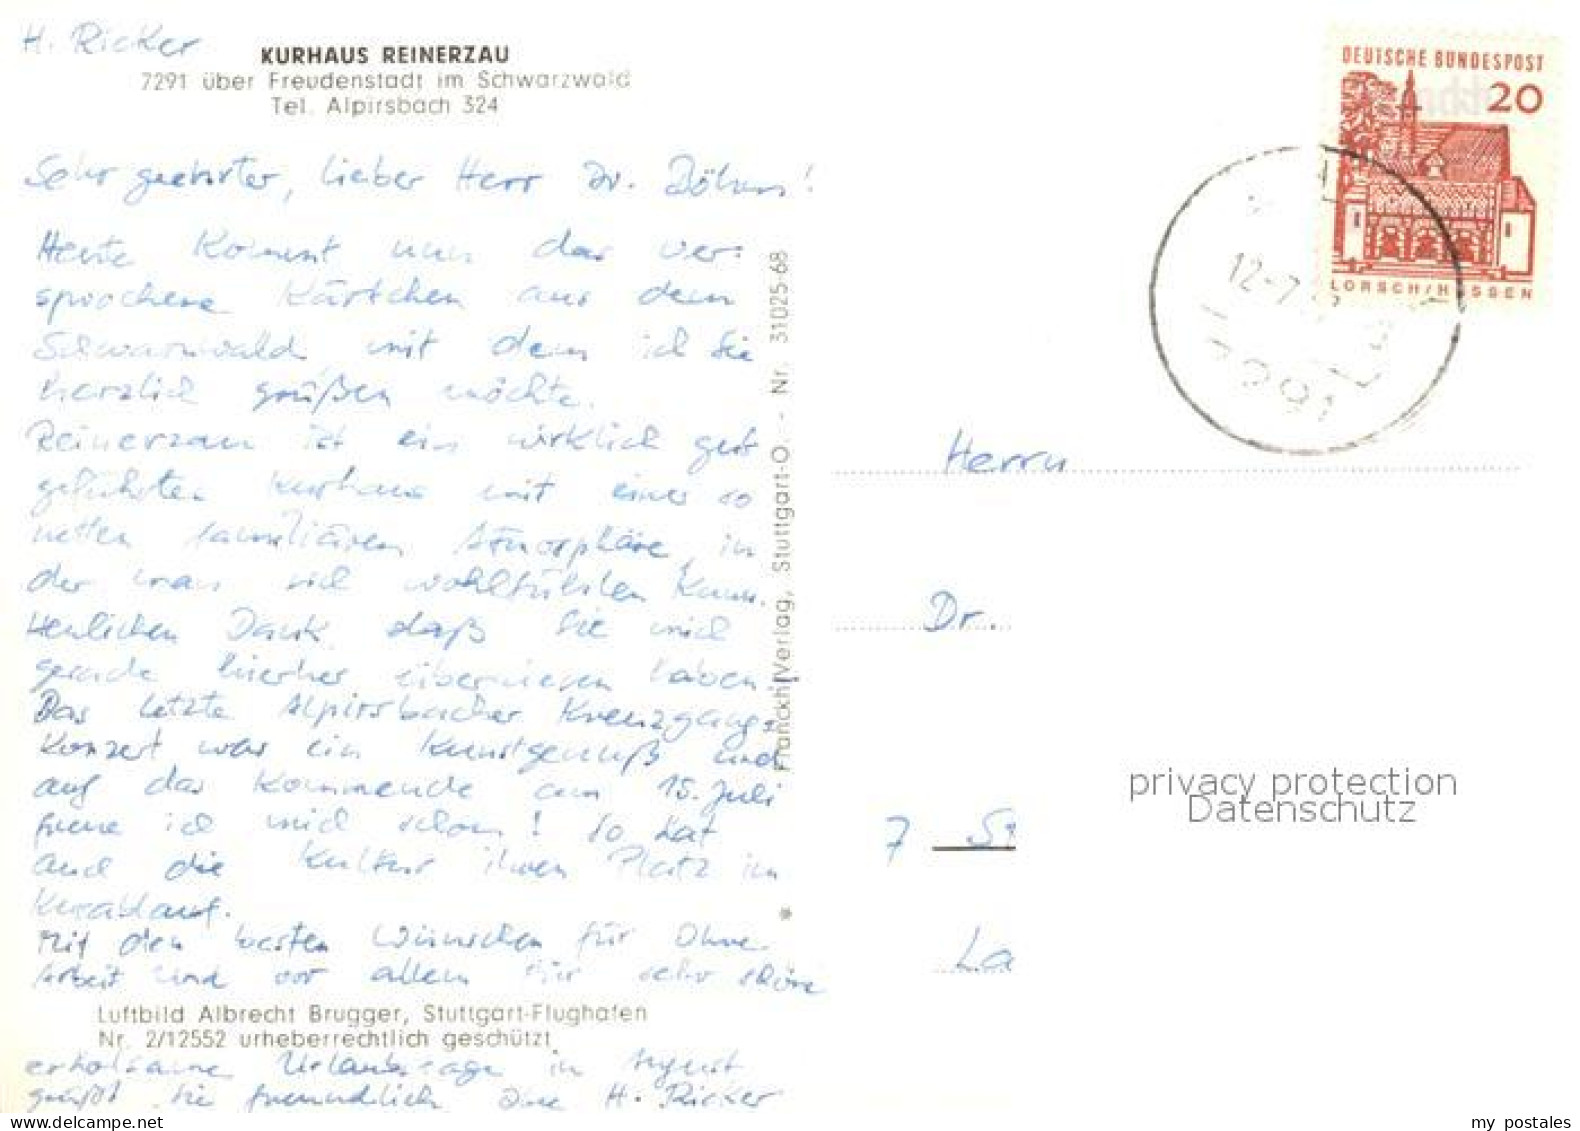 H. Ricker
KURHAUS REINERZAU
7291 über Freudenstadt im Schwarzwald
Tel. Alpirsbach 324
Sehr geehrter, lieber Herr Dr. Böhm!
Heute kommt nun das ver=
sprochene Kärtchen aus dem
Schwarzwald, mit dem ich Sie
herzlich grüßen möchte.
Reinerzau ist ein wirklich gut
geführtes Kurhaus mit einer so
netten familiären Atmosphäre, in
der man sich wohlfühlen kann.
Herzlichen Dank, daß Sie mich
gerade hierher überwiesen haben.
Das letzte Alpirsbacher Kreuzgang=
Konzert war ein Kunstgenuß und
auf das kommende am 15. Juli
freue ich mich schon! So hat
auch die Kultur ihren Platz im
Kurablauf.
Mit den besten Wünschen für Ihre
Arbeit und vor allem für sehr schöne
Luftbild Albrecht Brugger, Stuttgart-Flughafen
Nr. 2/12552 urheberrechtlich geschützt
erholsame Urlaubstage im August
grüßt Sie freundlich Ihre H. Ricker
Franckh-Verlag, Stuttgart-O. - Nr. 31025-68
DEUTSCHE BUNDESPOST
20
LORSCH/HESSEN
12.-7
7291
Herrn
Dr.
7 St
La
privacy protection
Datenschutz
my postales